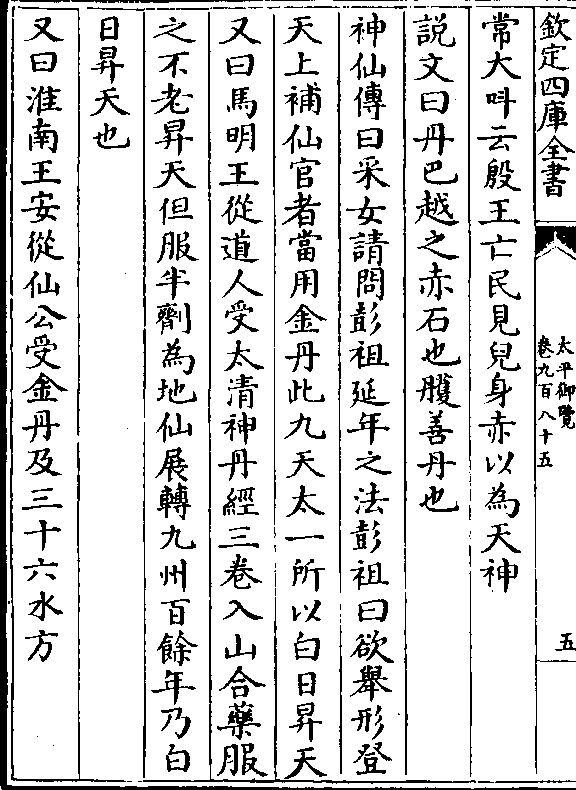 欽定四庫全書
太平御覽
卷九百八十五
五
常大呌云殷王亡民見兒身赤以為天神
説文曰丹巴越之赤石也雘善丹也
神仙傳曰采女請問彭祖延年之法彭祖曰欲舉形登
天上補仙官者當用金丹此九天太一所以白日昇天
又曰馬明王從道人受太清神丹經三卷入山合藥服
之不老昇天但服半劑為地仙展轉九州百餘年乃白
日昇天也
又曰淮南王安從仙公受金丹及三十六水方